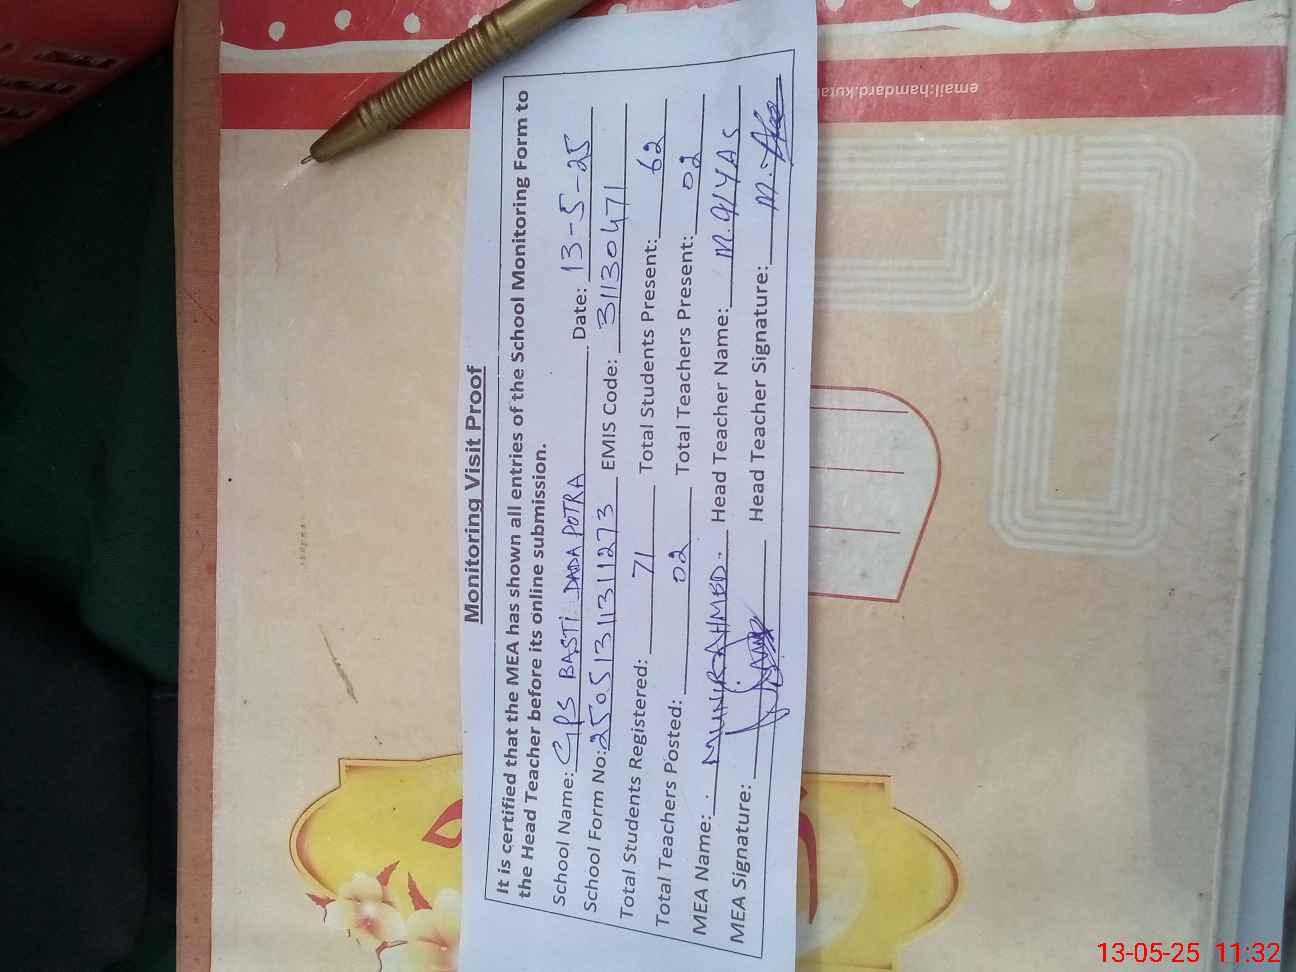 Monitoring Visit Proof
It is certified that the MEA has shown all entries of the School Monitoring Form to
the Head Teacher before its online submission.
School Name: GPS BASTI DADA POTRA Date: 13-5-25
School Form No: 25051311311273 EMIS Code: 31130471
Total Students Registered: 71 Total Students Present: 62
Total Teachers Posted: 02 Total Teachers Present: 02
MEA Name: MUNIR AHMED. Head Teacher Name: M. ILYAS
MEA Signature: Head Teacher Signature: M.
13-05-25 11:32